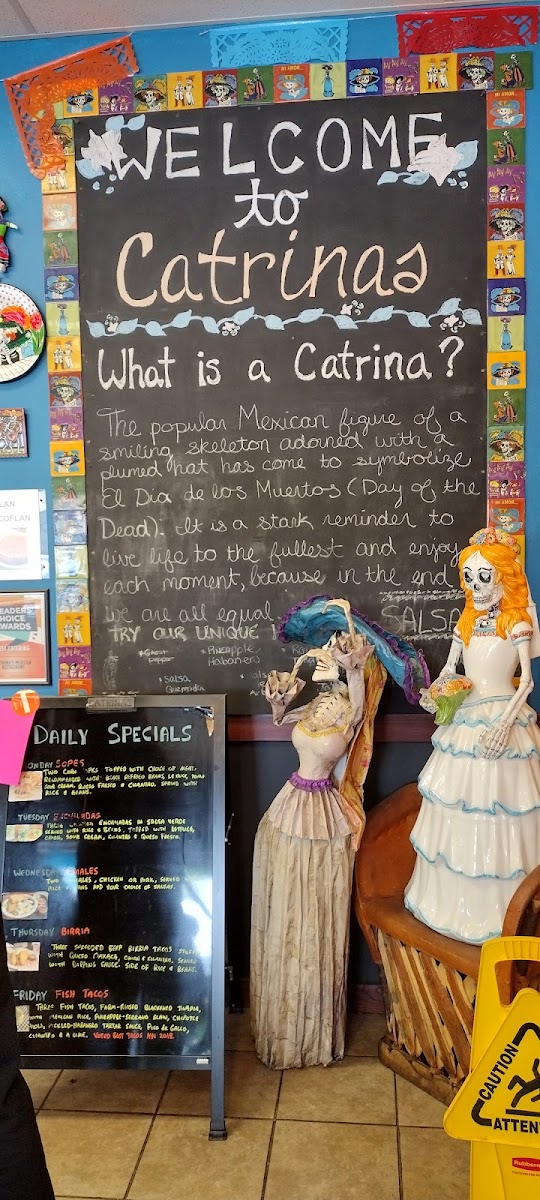 WELCOME
to
Catrinas
What is a Catrina?
The popular Mexican figure of a
smiling skeleton adorned with a
plumed hat has come to symbolize
El Día de los Muertos (Day of the
Dead). It is a stark reminder to
live life to the fullest and enjoy
each moment, because in the end
we are all equal.
TRY OUR UNIQUE SALSA
Ghost Pepper
Pineapple, Habanero
SALSA
LAN
COFLAN
EADERS'
HOICE
WARDS
DAILY SPECIALS
ONDAY SOPES
TOPPED WITH CHOICE OF MEAT.
SOUR CREAM, QUESO FRESCO & CILANTRO. SERVED WITH
RICE & BEANS.
TUESDAY ENCHILADAS
ENCHILADAS IN SALSA VERDE
SERVED WITH RICE & BEANS, TOPPED WITH LETTUCE,
SOUR CREAM, CILANTRO & QUESO FRESCO.
WEDNESDAY TAMALES
TWO TAMALES, CHICKEN OR PORK, SERVED
RICE BEANS AND YOUR CHOICE OF SALSA.
THURSDAY BIRRIA
THREE SHREDDED BEEF BIRRIA TACOS
WITH QUESO OAXACA, ONION & CILANTRO, SERVED
WITH DIPPING SAUCE. SIDE OF RICE & BEANS.
FRIDAY FISH TACOS
THREE FISH TACOS, FARM-RAISED BLACKENED TILAPIA,
MEXICAN RICE, PINEAPPLE-SERRANO SLAW, CHIPOTLE
PICKLED-HABANERO TARTAR SAUCE, PICO DE GALLO,
CILANTRO & A LIME. VOTED BEST TACOS
CAUTION
ATTEN
Rubberm